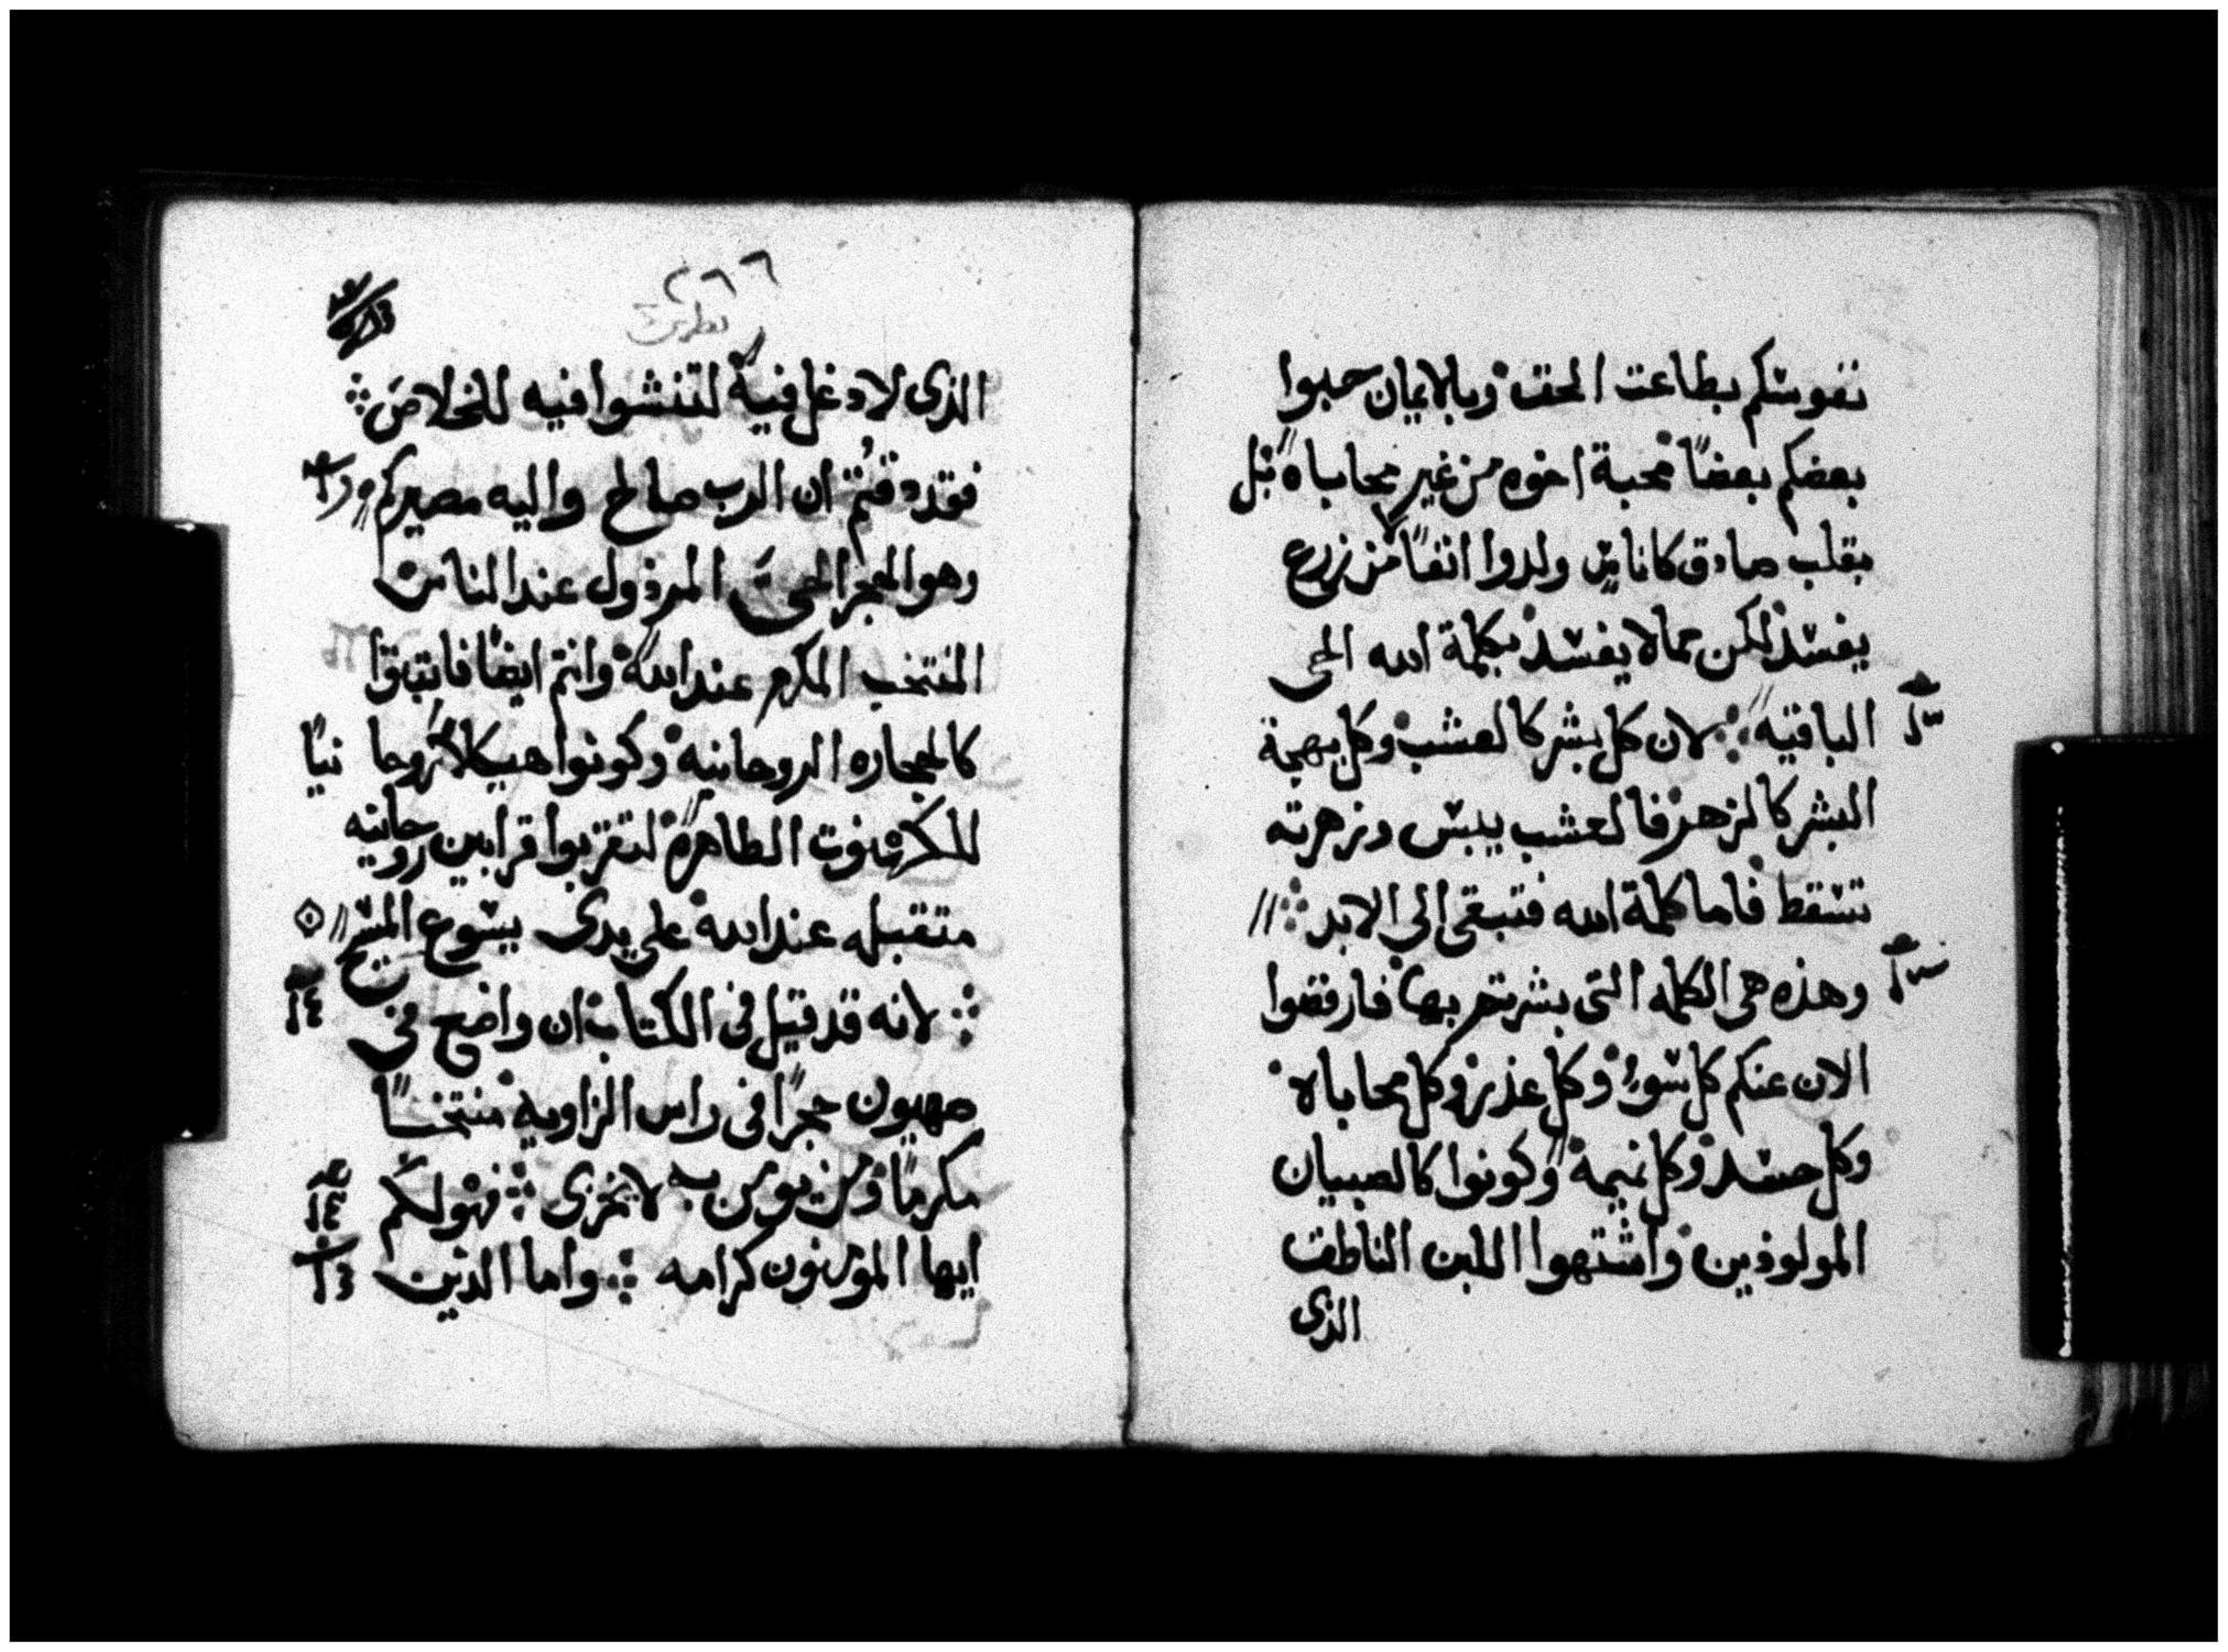 نفوسكم بطاعت الحق وبالايمان حبوا
بعضكم بعضًا محبة اخوه من غير محاباه بل
بقلب صادق كاناس ولدوا انفًا من زرع
يفسد لكن مما لا يفسد بكلمة الله الحي
الباقيه لان كل بشر كالعشب وكل بهجة
البشر كالزهر فالعشب ييبس وزهرته
تسقط فاما كلمة الله فتبقي الي الابد
وهذه هى الكلمه التى بشرتم بها فارفضوا
الان عنكم كل سوء وكل عذر وكل محاباه
وكل حسد وكل نميمة وكونوا كالصبيان
المولودين واشتهوا اللبن الناطق
الذى
٢٦٦
الذى لا دغل فيه لتنشوا فيه للخلاص
فقد دقتم ان الرب صالح واليه مصيركم
وهو الحجر الحي المرذول عند الناس
المنتخب المكرم عند الله وانتم ايضًا فابتنوا
كالحجاره الروحانيه وكونوا هيكلاً روحا نيًا
للكهنوت الطاهره لتقربوا قرابين روحانيه
متقبله عند الله علي يدى يسوع المسيح
لانه قد قيل فى الكتاب ان واضع فى
صهيون حجرًا فى راس الزاويه منتخبًا
مكرمًا ومن يومن به لا يخزى فهو لكم
ايها المومنون كرامه واما الذين